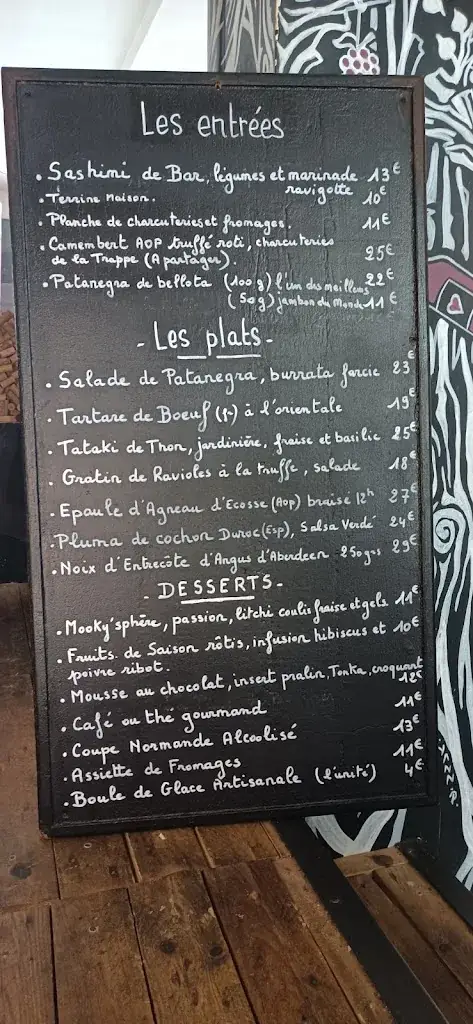 Les entrées
. Sashimi de Bar, légumes et marinade 13€
ravigotte
. Terrine Maison. 10€
. Planche de charcuteries et fromages. 11€
. Camembert AOP truffé roti, charcuteries
de la Trappe (A partager). 25€
. Patanegra de bellota (100g) l'un des meilleurs 22€
(50g) jambon du Monde 11€
- Les plats -
. Salade de Patanegra, burrata farcie 23€
. Tartare de Boeuf (fr) à l'orientale 19€
. Tataki de Thon, jardinière, fraise et basilic 25€
. Gratin de Ravioles à la truffe, salade 18€
. Epaule d'Agneau d'Ecosse (Aop) braisé 12h 27€
. Pluma de cochon Duroc (Esp), Salsa Verdé 24€
. Noix d'Entrecôte d'Angus d'Aberdeen 250grs 29€
- DESSERTS -
. Mooky'sphère, passion, litchi coulis fraise et gels 11€
. Fruits de Saison rôtis, infusion hibiscus et 10€
poivre ribot.
. Mousse au chocolat, insert pralin, Tonka, croquant
12€
. Café ou thé gourmand 11€
. Coupe Normande Alcoolisé 13€
. Assiette de Fromages 11€
. Boule de Glace Artisanale (l'unité) 4€